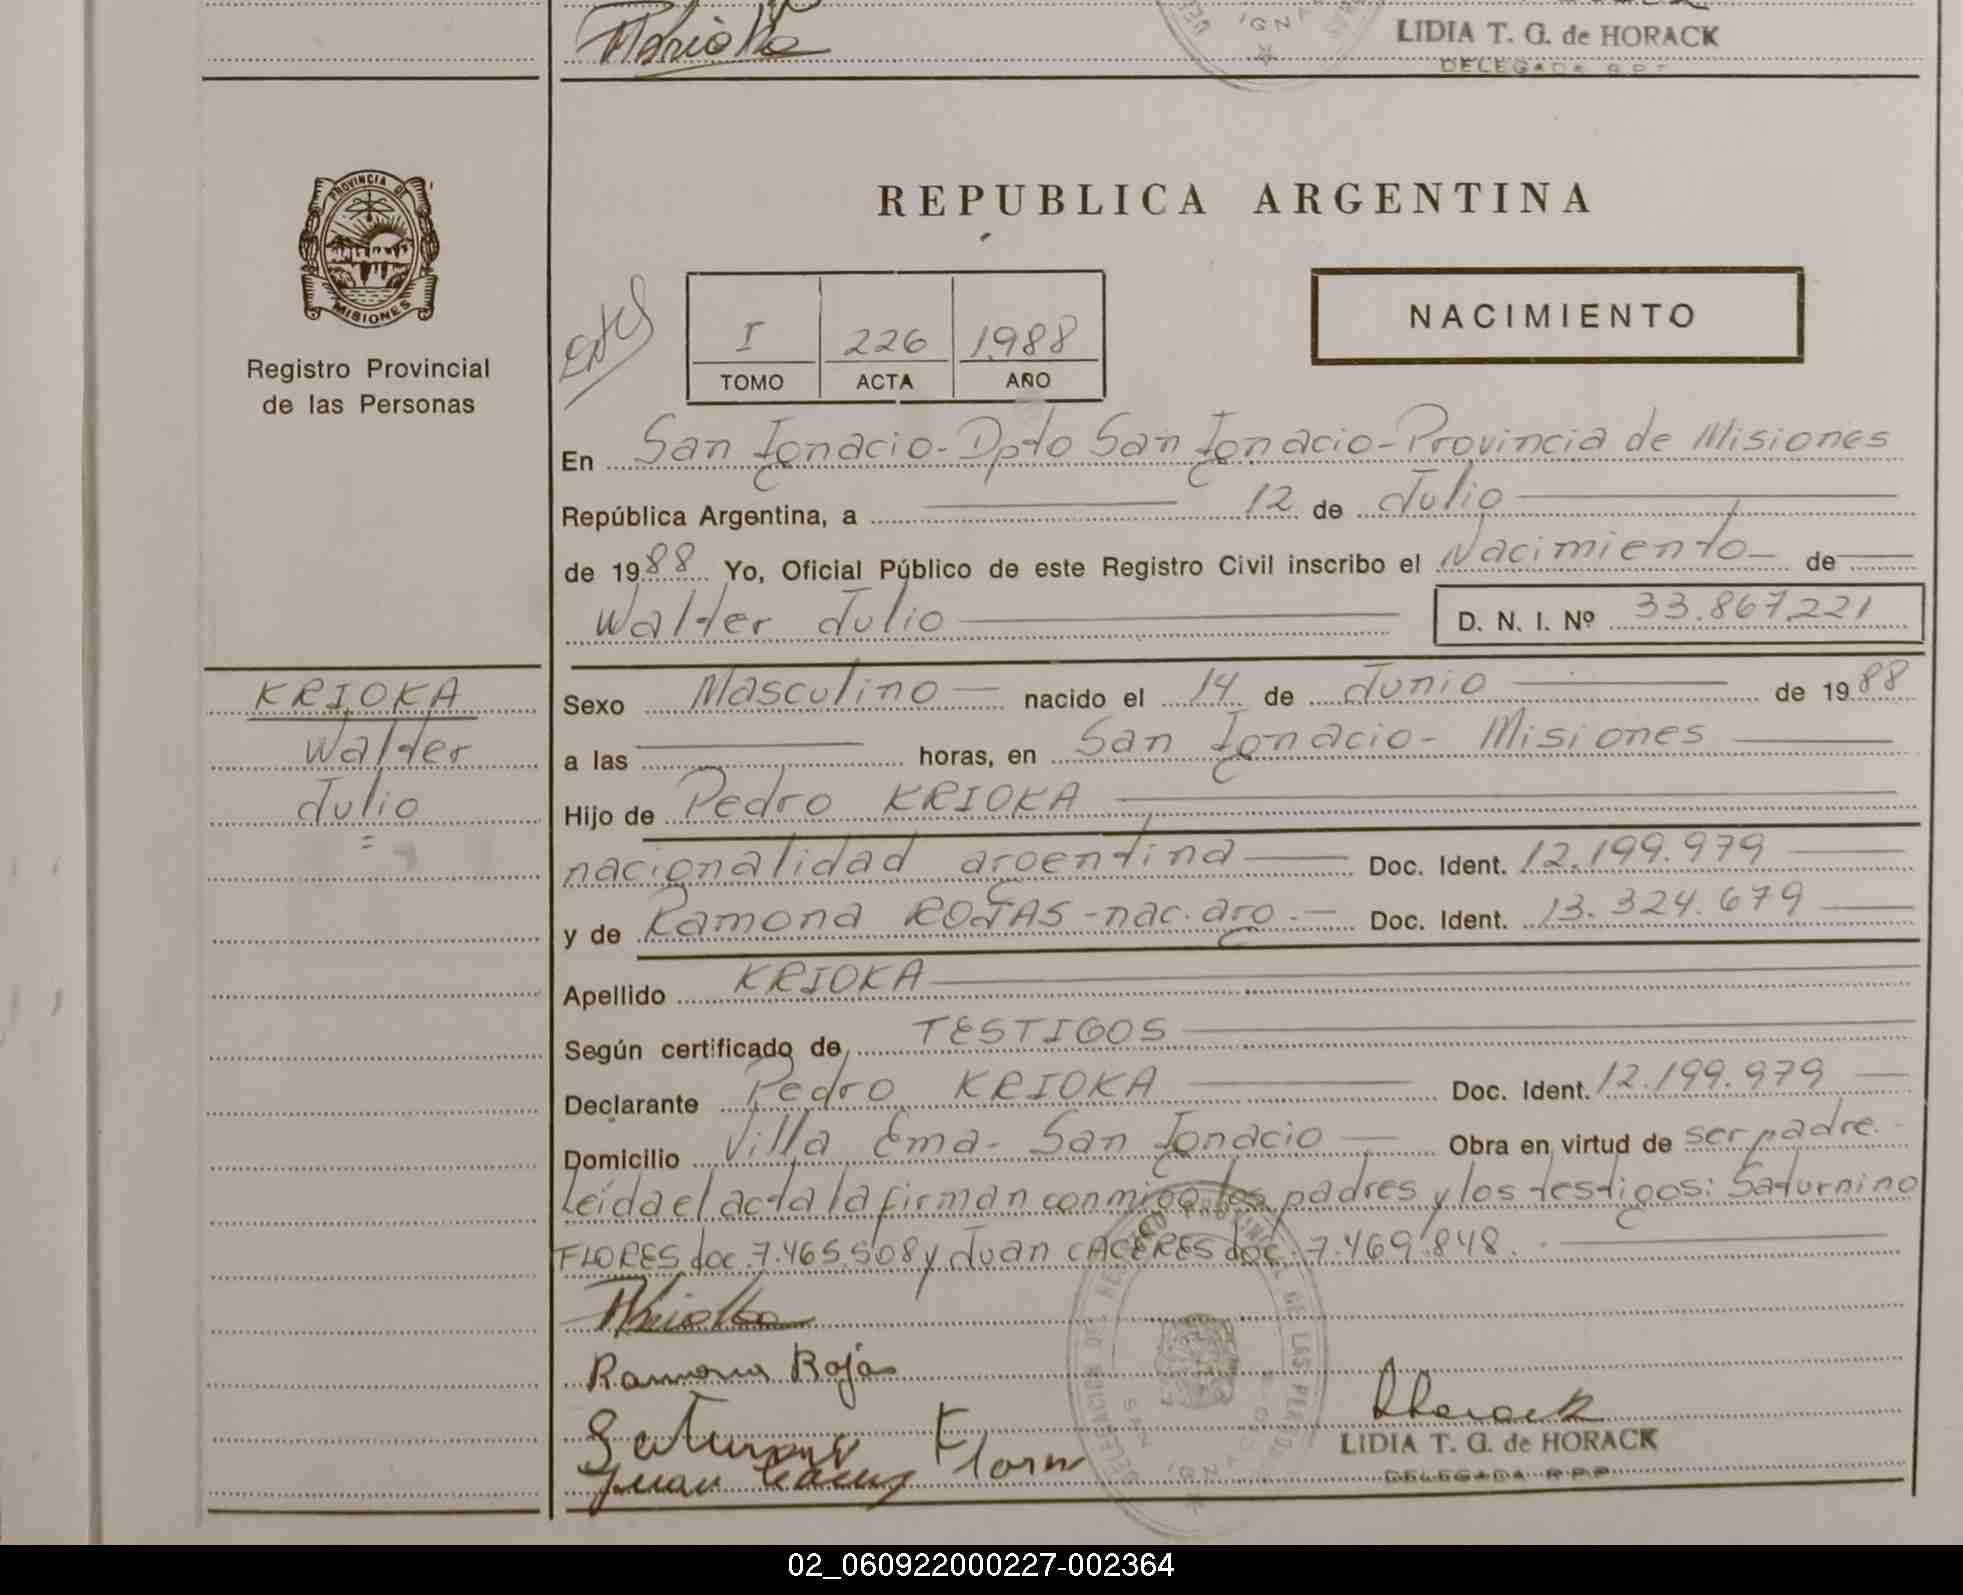 LIDIA T. G. de HORACK
DELEGADA
PROVINCIA DE
MISIONES
Registro Provincial
de las Personas
REPUBLICA ARGENTINA
I 226 1988
TOMO ACTA AÑO
NACIMIENTO
En San Ignacio - Dpto San Ignacio - Provincia de Misiones
República Argentina, a 12 de Julio
de 1988 Yo, Oficial Público de este Registro Civil inscribo el Nacimiento de
Walter Julio D. N. I. Nº 33.867.221
KRIOKA
Walter
Julio
Sexo Masculino nacido el 14 de Junio de 1988
a las horas, en San Ignacio - Misiones
Hijo de Pedro KRIOKA
nacionalidad argentina Doc. Ident. 12.199.979
y de Ramona ROJAS - nac. arg. Doc. Ident. 13.324.679
Apellido KRIOKA
Según certificado de TESTIGOS
Declarante Pedro KRIOKA Doc. Ident. 12.199.979
Domicilio Villa Ema - San Ignacio Obra en virtud de ser padre.
Leída el acta la firman conmigo los padres y los testigos: Saturnino
FLORES doc. 7.465.508 y Juan CACERES doc. 7.469.848.
Ramona Rojas
LIDIA T. G. de HORACK
DELEGADA R.P.P.
02_060922000227-002364